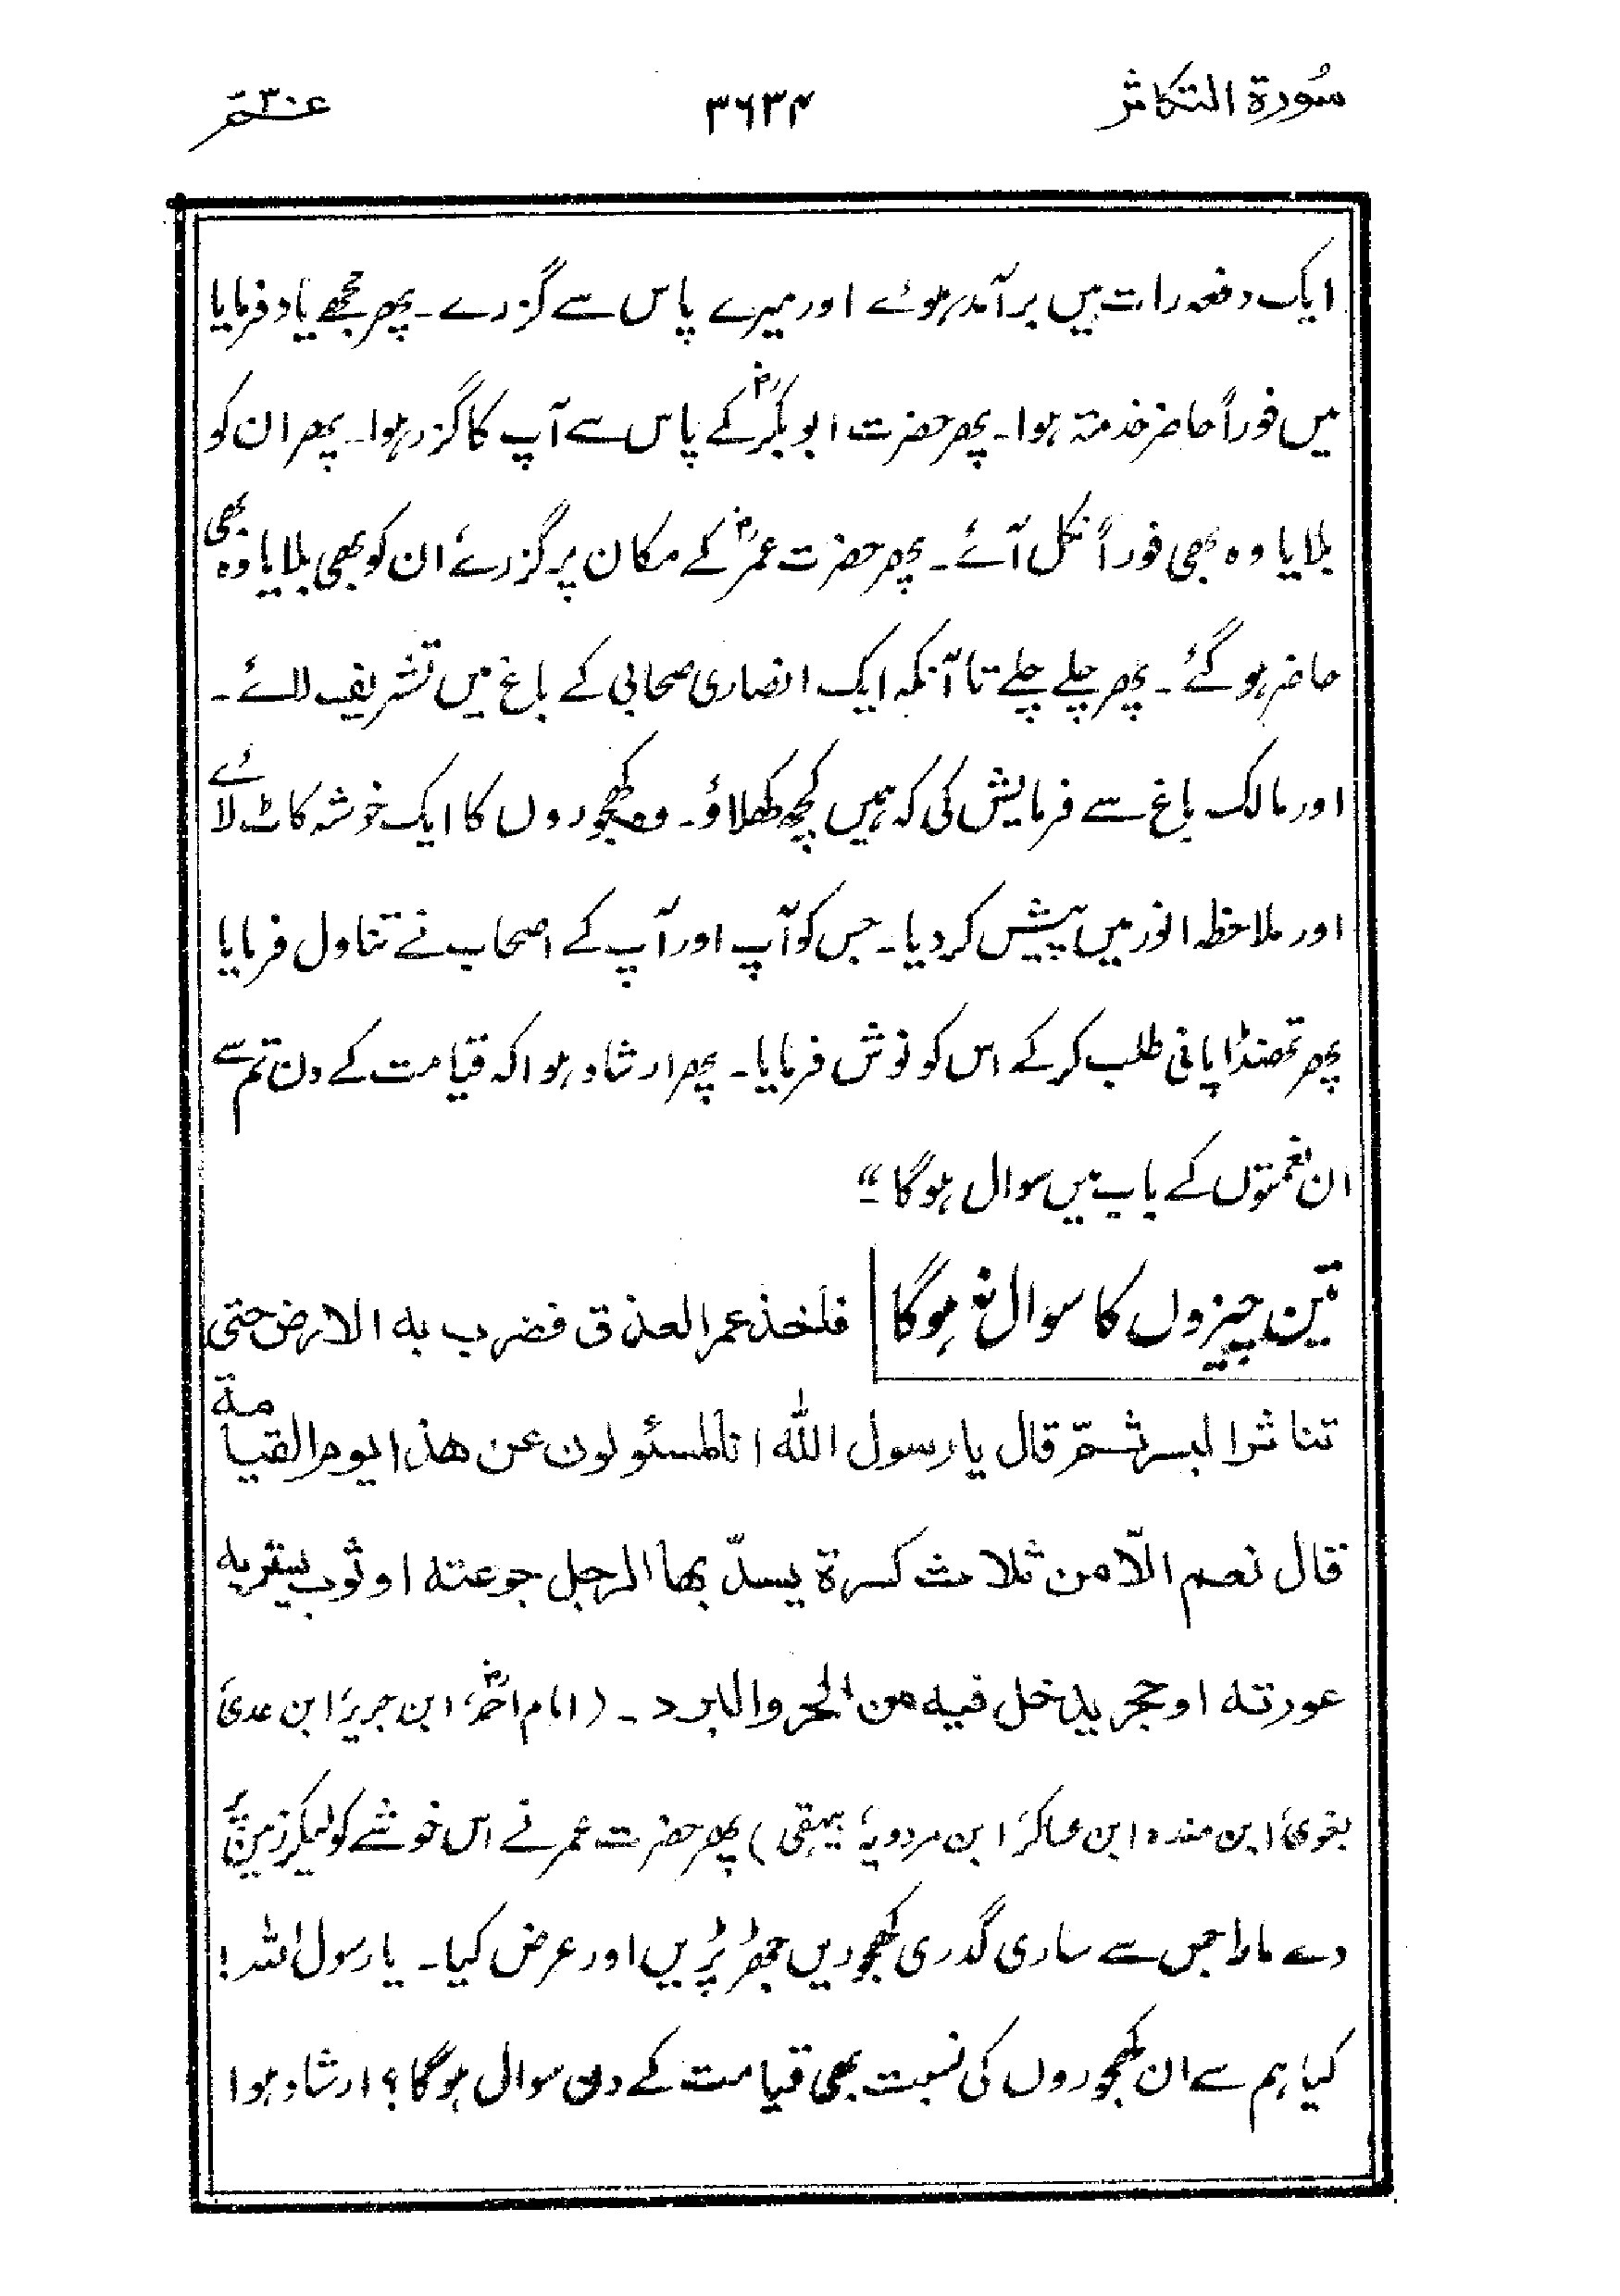 سُورة التكاثر ۳۶۳۴ عمّ ۳۰
ایک دفعہ رات میں برآمد ہوئے اور میرے پاس سے گزرے۔ پھر مجھے یاد فرمایا
میں فوراً حاضر خدمتہ ہوا۔ پھر حضرت ابوبکرؓ کے پاس سے آپ کا گزر ہوا۔ پھر ان کو
بلایا وہ بھی فوراً نکل آئے۔ پھر حضرت عمرؓ کے مکان پر گزرے، ان کو بھی بلایا وہ بھی
حاضر ہو گئے۔ پھر چلے چلے تا آنکہ ایک انصاری صحابی کے باغ میں تشریف لائے۔
اور مالک باغ سے فرمایش کی کہ ہمیں کچھ کھلاؤ۔ وہ کھجوروں کا ایک خوشہ کاٹ لائے
اور ملاخظہ انور میں پیش کر دیا۔ جس کو آپ اور آپ کے اصحاب نے تناول فرمایا
پھر ٹھنڈا پانی طلب کر کے اس کو نوش فرمایا۔ پھر ارشاد ہوا کہ قیامت کے دن تم سے
ان نعمتوں کے باب میں سوال ہوگا۔“
تین چیزوں کا سوال نہ ہوگا فلخذ عمر العذق فضرب به الارض حتى
تناثر البسر ثمّ قال يا رسول الله انا لمسئولون عن هذا يوم القيامة
قال نعم الّا من ثلاث كسرة يسدّ بها الرجل جوعته او ثوب يستر به
عورته او حجر يدخل فيه من الحر والبرد۔ (امام احمدؒ، ابن جریر، ابن عدی،
بغوی، ابن منده ابن عساکر، ابن مردویہ، بیہقی) پھر حضرت عمر نے اس خوشے کو لیکر زمین پر
دے مارا جس سے ساری گدری کھجوریں جھڑ پڑیں اور عرض کیا۔ یا رسول اللہ!
کیا ہم سے ان کھجوروں کی نسبت بھی قیامت کے دن سوال ہوگا؟ ارشاد ہوا